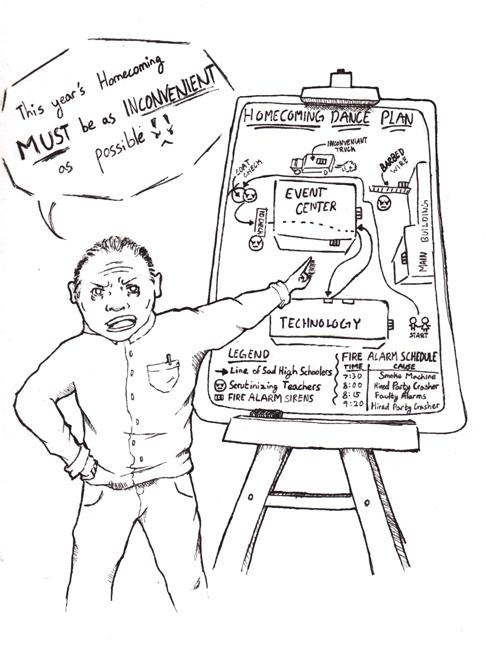 This year's Homecoming
MUST be as INCONVENIENT
as possible!!
HOMECOMING DANCE PLAN
INCONVENIENT
TRUCK
COAT
CHECK
BARBED
WIRE
EVENT
CENTER
ID CHECK
MAIN BUILDING
START
TECHNOLOGY
LEGEND
Line of Sad High Schoolers
Scrutinizing Teachers
FIRE ALARM SIRENS
FIRE ALARM SCHEDULE
TIME CAUSE
7:30 Smoke Machine
8:00 Hired Party Crasher
8:15 Faulty Alarms
9:20 Hired Party Crasher